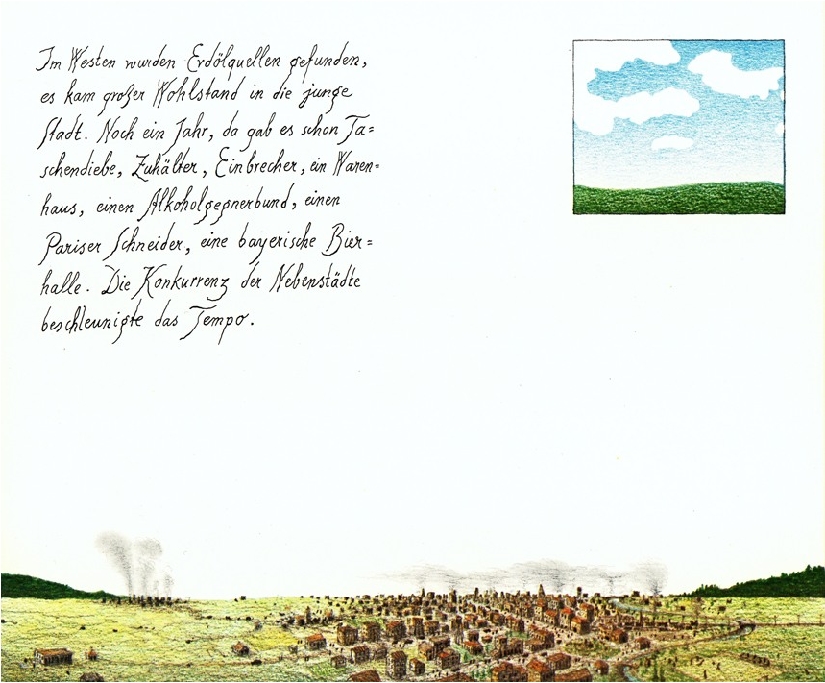 Im Westen wurden Erdölquellen gefunden,
es kam großer Wohlstand in die junge
Stadt. Noch ein Jahr, da gab es schon Ta=
schendiebe, Zuhälter, Einbrecher, ein Waren=
haus, einen Alkoholgegnerbund, einen
Pariser Schneider, eine bayerische Bier=
halle. Die Konkurrenz der Nebenstädte
beschleunigte das Tempo.